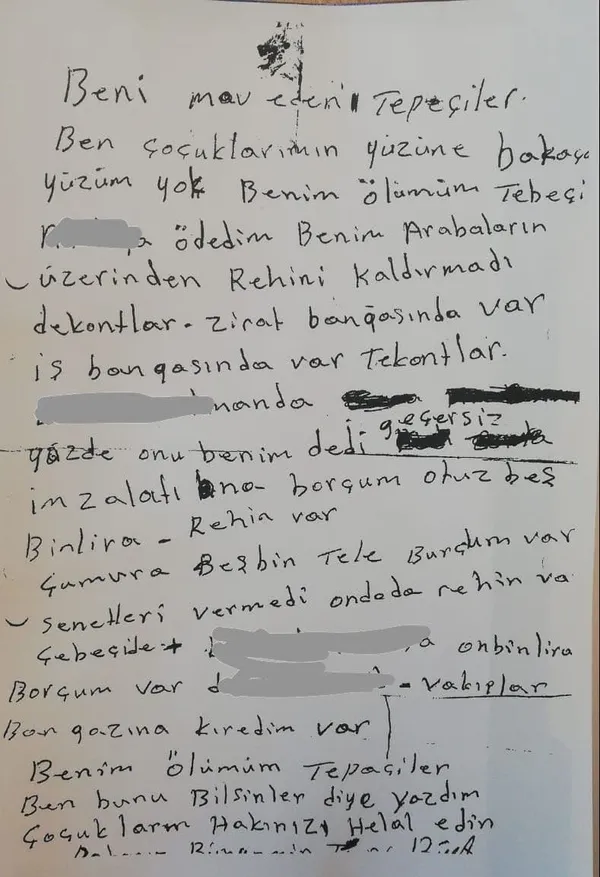 Beni mav eden Tepeçiler.
Ben çoçuklarımın yüzüne bakaça
yüzüm yok Benim ölümüm Tebeçi
ödedim Benim Arabaların
üzerinden Rehini kaldırmadı
dekontlar - zirat banğasında var
iş banqasında var Tekontlar.
geçersiz
yüzde onu benim dedi
imzalatı bna borçum otuz beş
Binlira - Rehin var
Çumura Beşbin Tele Burçum var
senetleri vermedi ondada rehin va
Çebeçide onbinlira
Borçum var - vakıplar
Bangazına kıredim var
Benim ölümüm Tepaçiler
Ben bunu Bilsinler diye yazdım
Çoçuklarm Hakınızı Helal edin